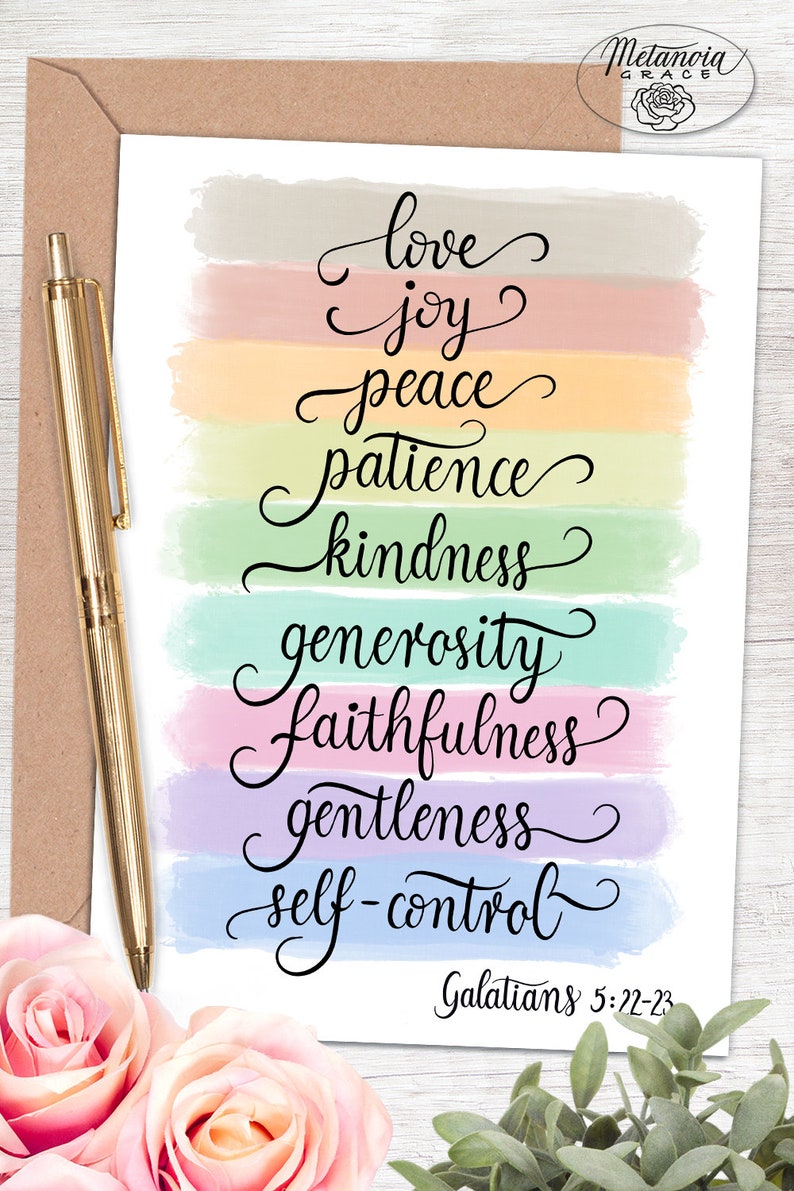 Metanoia
GRACE
love
joy
peace
patience
kindness
generosity
faithfulness
gentleness
self-control
Galatians 5:22-23